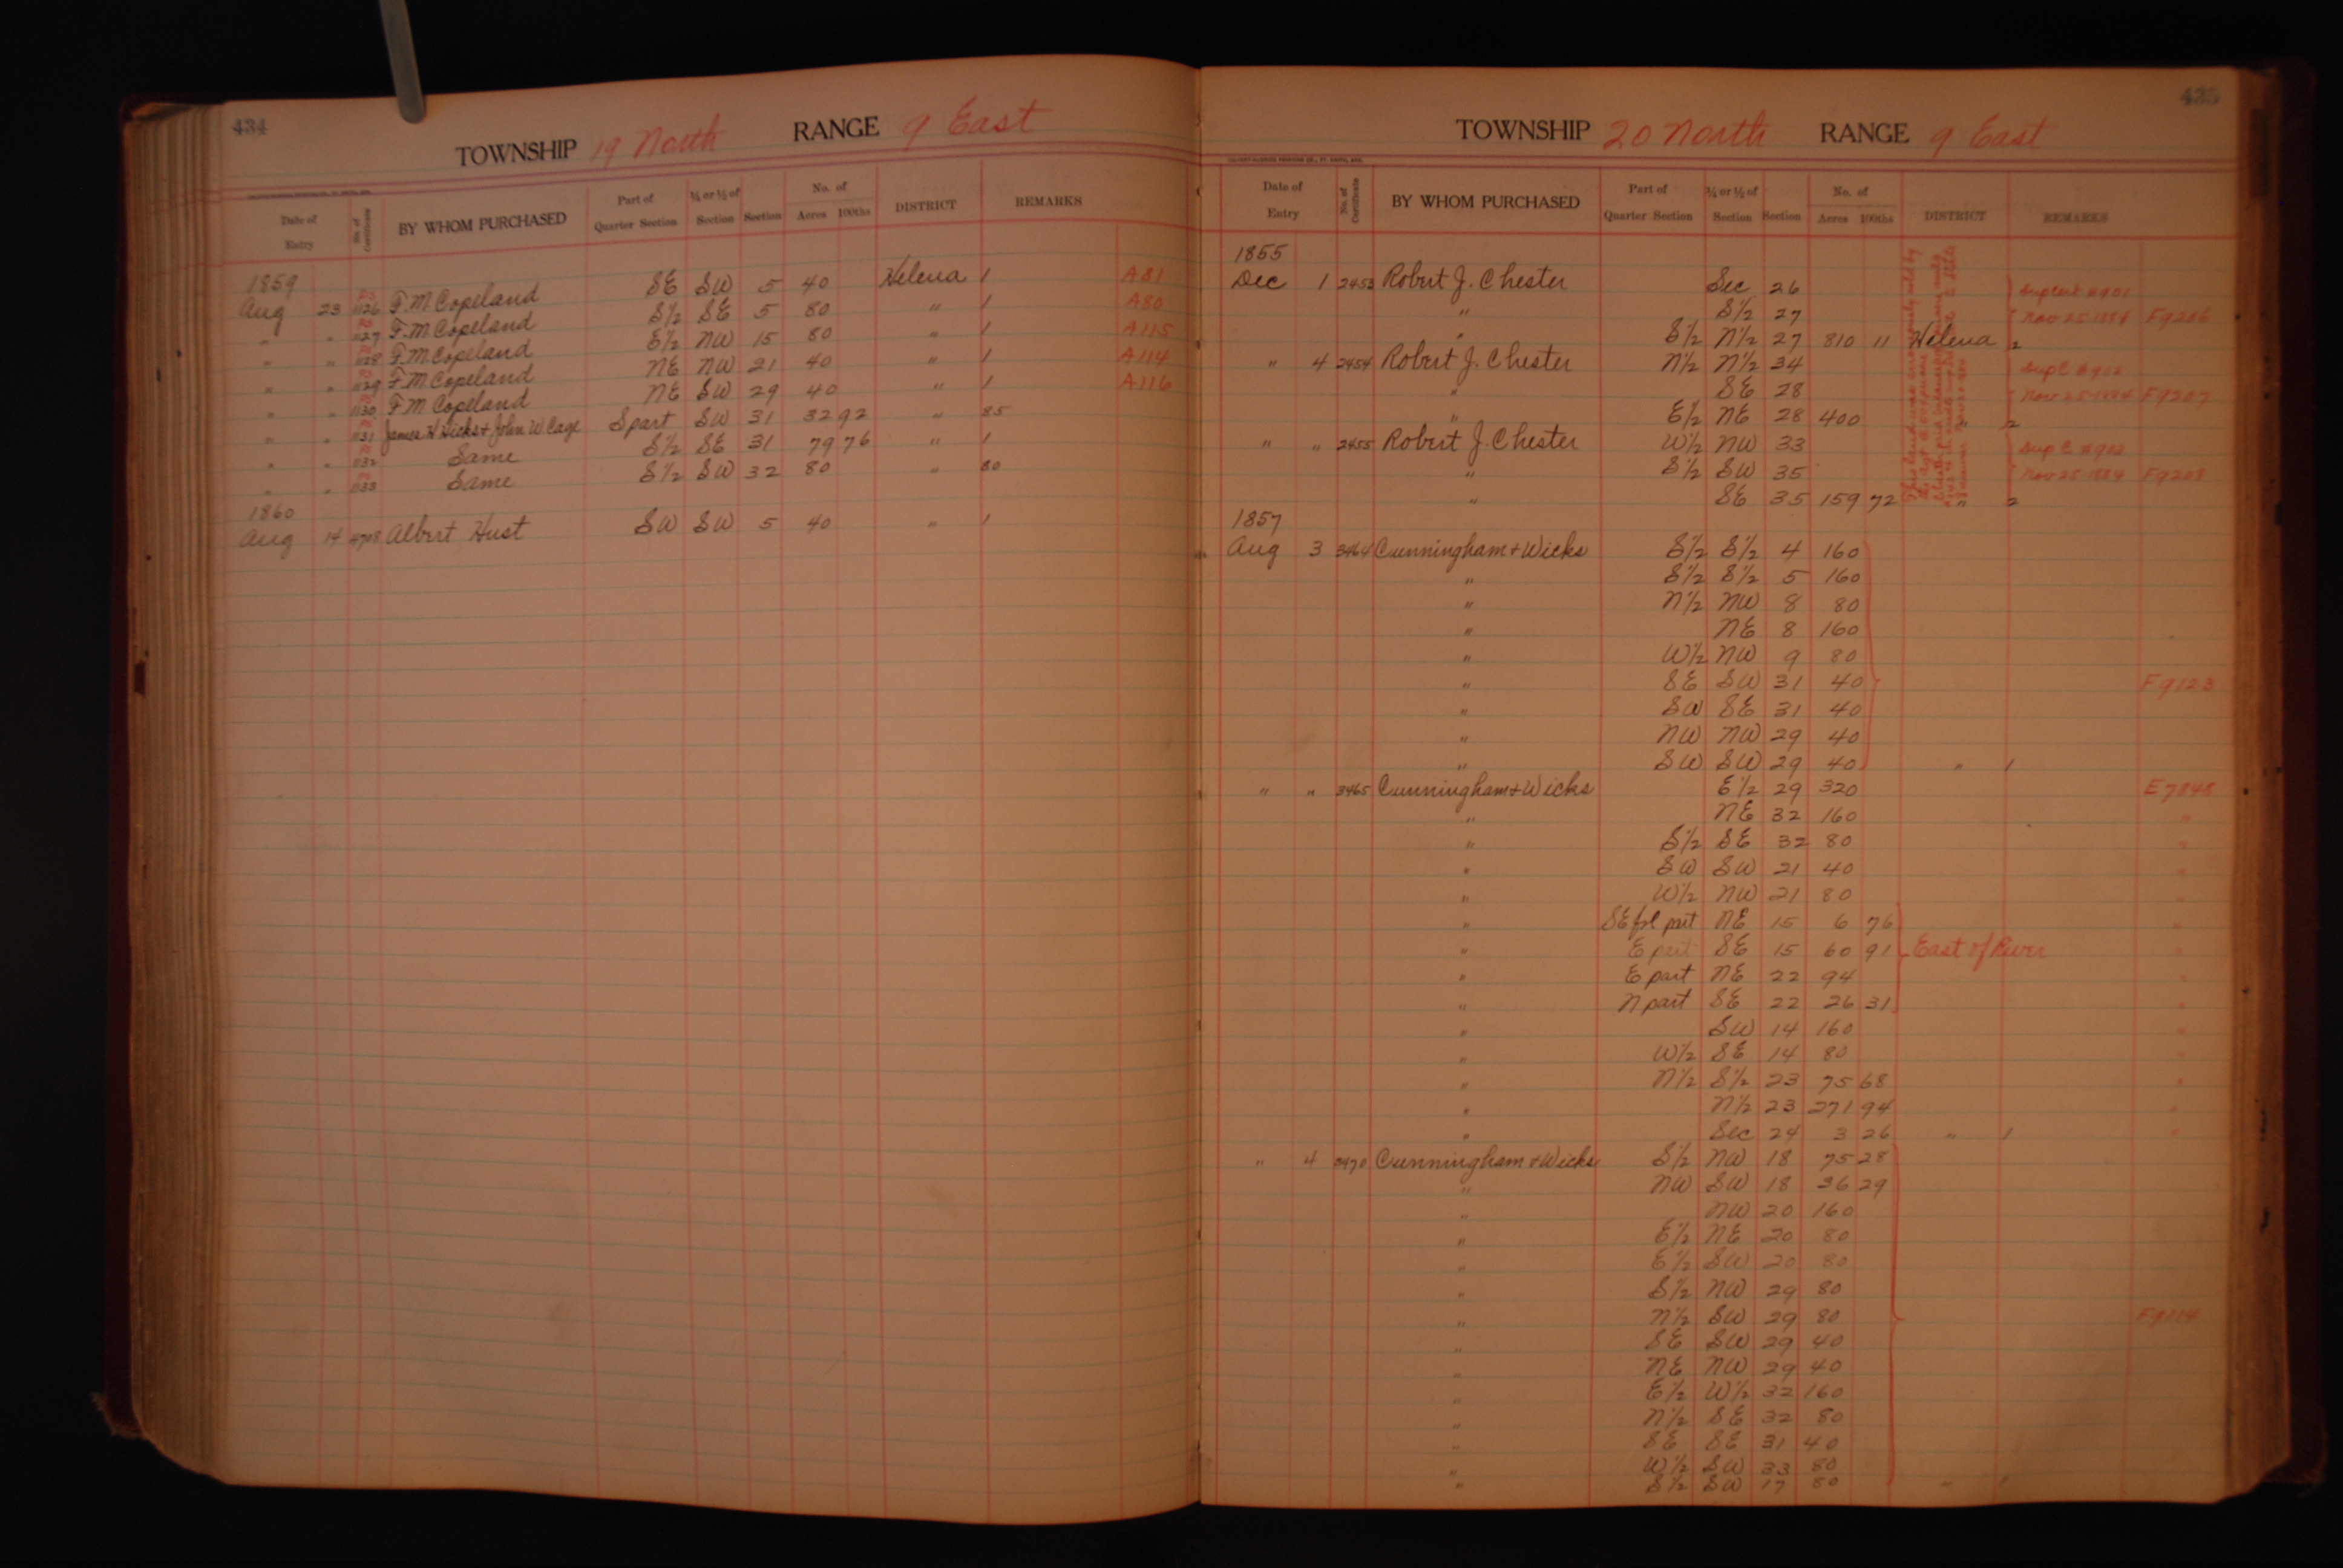 434
TOWNSHIP 19 North RANGE 9 East
Date of Entry No. of Certificate BY WHOM PURCHASED Part of Quarter Section ¼ or ½ of Section Section No. of Acres 100ths DISTRICT REMARKS
1859
Aug 23 1126 F. M. Copeland SE SW 5 40 Helena 1 A81
" " 1127 F. M. Copeland S½ SE 5 80 " 1 A80
" " 1128 F. M. Copeland E½ NW 15 80 " 1 A115
" " 1129 F. M. Copeland NE NW 21 40 " 1 A114
" " 1130 F M Copeland NE SW 29 40 " 1 A116
" " 1131 James H Wicks & John W Cage S part SW 31 32 92 " 85
" " 1132 Same S½ SE 31 79 76 " 1
" " 1133 Same S½ SW 32 80 " 80
1860
Aug 14 4708 Albert Hust SW SW 5 40 " 1
435
TOWNSHIP 20 North RANGE 9 East
Date of Entry No. of Certificate BY WHOM PURCHASED Part of Quarter Section ¼ or ½ of Section Section No. of Acres 100ths DISTRICT REMARKS
1855
Dec 1 2453 Robert J. Chester Sec 26 Sup Cert #901
" S½ 27 Nov 25-1884 F9206
" S½ N½ 27 810 11 Helena 2
" 4 2454 Robert J. Chester N½ N½ 34 Sup C #902
" SE 28 Nov 25-1884 F9207
" E½ NE 28 400 " 2
" " 2455 Robert J. Chester W½ NW 33 Sup C #903
" S½ SW 35 Nov 25-1884 F9208
" SE 35 159 72 " 2
1857
Aug 3 3464 Cunningham & Wicks S½ S½ 4 160
" S½ S½ 5 160
" N½ NW 8 80
" NE 8 160
" W½ NW 9 80
" SE SW 31 40 F9123
" SW SE 31 40
" NW NW 29 40
" SW SW 29 40 " 1
" " 3465 Cunningham & Wicks E½ 29 320 E7848
" NE 32 160 "
" S½ SE 32 80 "
" SW SW 21 40 "
" W½ NW 21 80 "
" SE frl part NE 15 6 76 "
" E part SE 15 60 91 East of River "
" E part NE 22 94 "
" N part SE 22 26 31 "
" SW 14 160 "
" W½ SE 14 80 "
" N½ S½ 23 75 68 "
" N½ 23 271 94 "
" Sec 24 3 26 " 1 "
" 4 3470 Cunningham & Wicks S½ NW 18 75 28
" NW SW 18 36 29
" NW 20 160
" E½ NE 20 80
" E½ SW 20 80
" S½ NW 29 80
" N½ SW 29 80 F9114
" SE SW 29 40
" NE NW 29 40
" E½ W½ 32 160
" N½ SE 32 80
" SE SE 31 40
" W½ SW 33 80
" S½ SW 17 80 "